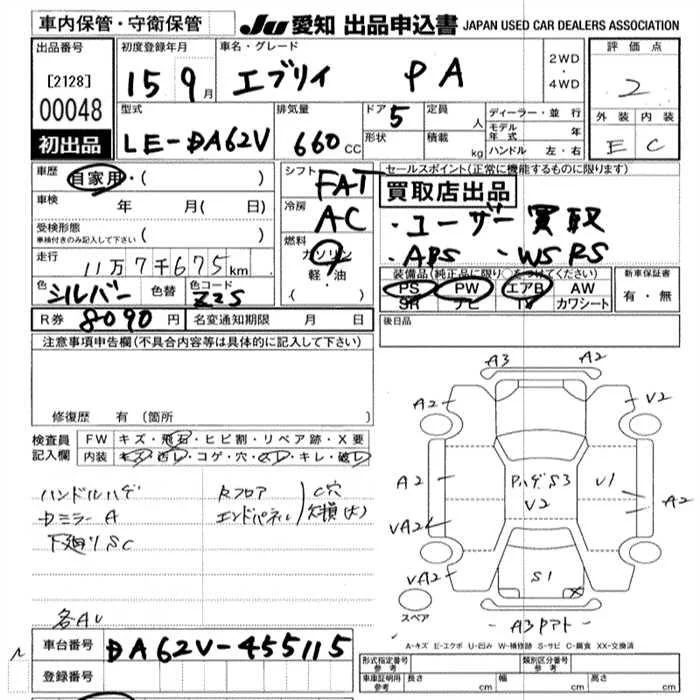 車内保管・守衛保管
JU 愛知 出品申込書 JAPAN USED CAR DEALERS ASSOCIATION
出品番号
[2128]
00048
初出品
初度登録年月
15 9月
車名・グレード
エブリイ PA
2WD
・
4WD
評価点
2
外装 内装
E C
型式
LE-DA62V
排気量
660cc
ドア
5
形状
定員
人
積載
kg
ディーラー・並行
モデル年式 年
ハンドル 左・右
車歴
自家用・( )
車検 年 月( 日)
受検形態
車検付きのみ記入して下さい ( )
走行
11万7千675km
色 シルバー 色替 色コード Z2S
R券 8090円 名変通知期限 月 日
シフト
FAT
冷房
AC
燃料
ガソリン
軽・油
( )
セールスポイント(正常に機能するものに限ります)
買取店出品
・ユーザー買取
・ABS ・WSRS
装備品(純正品に限り○をつけてください)
PS PW エアB AW
SR ナビ TV カワシート
新車保証書
有・無
後日品
注意事項申告欄(不具合内容等は具体的に記入して下さい)
修復歴 有(箇所
検査員記入欄
FW キズ・飛石・ヒビ割・リペア跡・X要
内装 キズ・汚レ・コゲ・穴・スレ・キレ・破レ
ハンドルハゲ
Dミラー A
下廻りSC
Rフロア
エンドパネル
C穴
欠損(大)
各AU
車台番号 DA62V-455115
登録番号
A3 A2
A2 V2
A2 PハゲS3 V1 A2
V2
VA2
VA2 S1
スペア
- A3Pアト -
A-キズ E-エクボ U-凹み W-補修跡 S-サビ C-腐食 XX-交換済
形式指定番号 参考
類別区分番号 参考
車庫証明用 参考 長さ cm 幅 cm 高さ cm